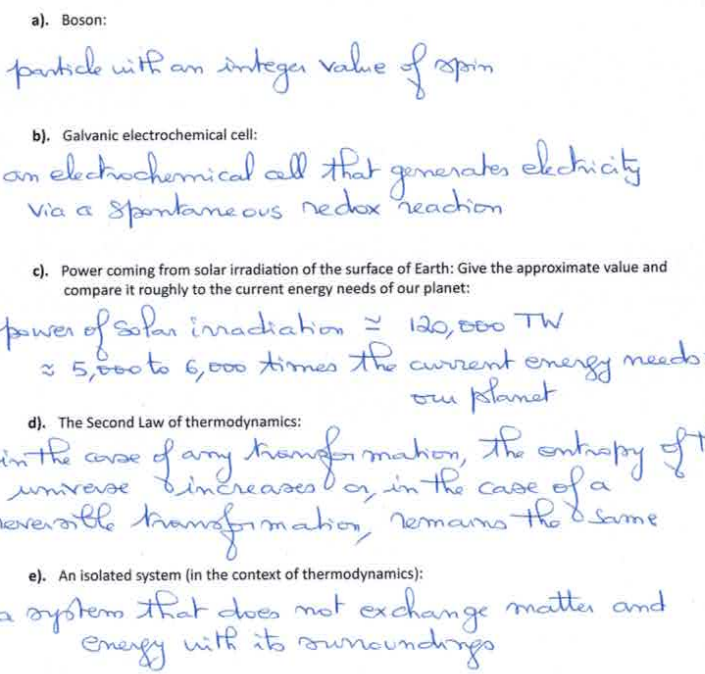 a). Boson:
particle with an integer value of spin
b). Galvanic electrochemical cell:
an electrochemical cell that generates electricity
via a spontaneous redox reaction
c). Power coming from solar irradiation of the surface of Earth: Give the approximate value and
compare it roughly to the current energy needs of our planet:
power of solar irradiation ≃ 120,000 TW
≈ 5,000 to 6,000 times the current energy needs
our planet
d). The Second Law of thermodynamics:
in the case of any transformation, the entropy of t
universe increases or, in the case of a
reversible transformation, remains the same
e). An isolated system (in the context of thermodynamics):
a system that does not exchange matter and
energy with its surroundings